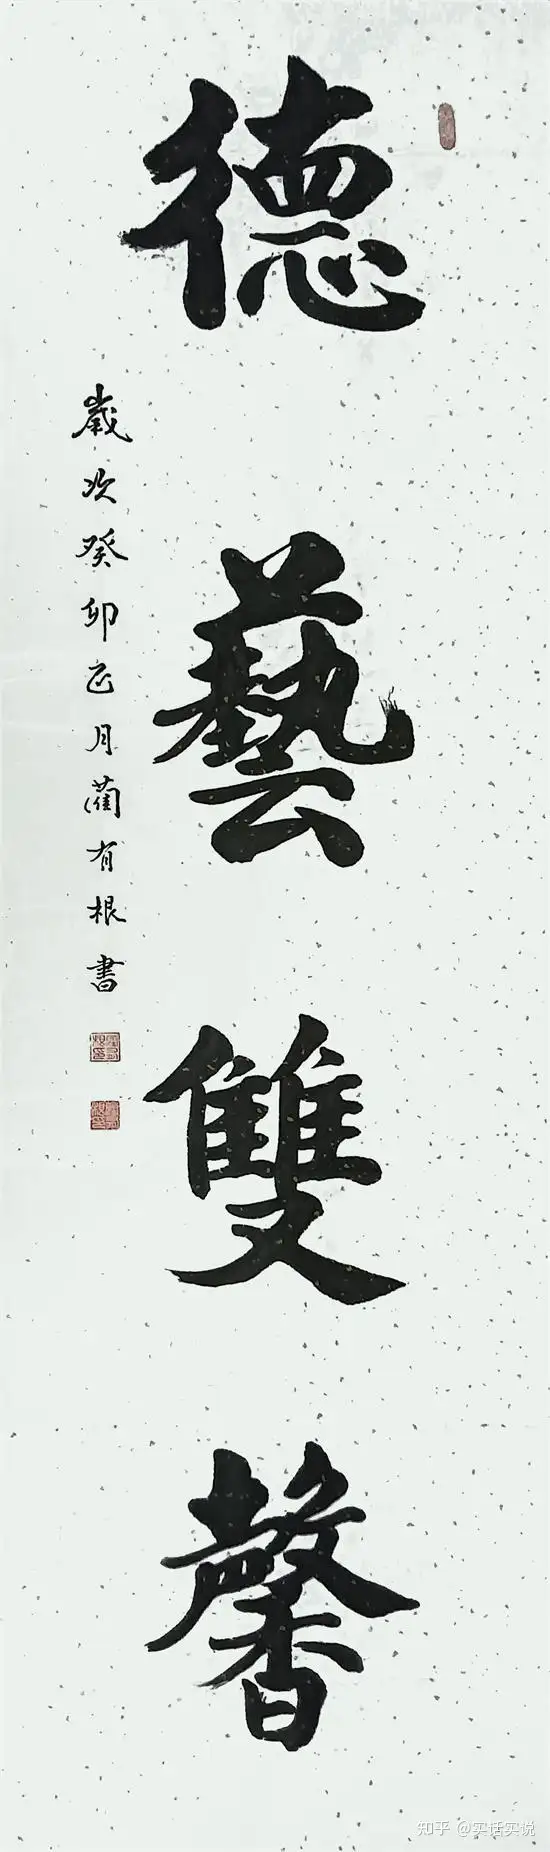 德藝雙馨
歲次癸卯正月藺有根書
知乎 @实话实说